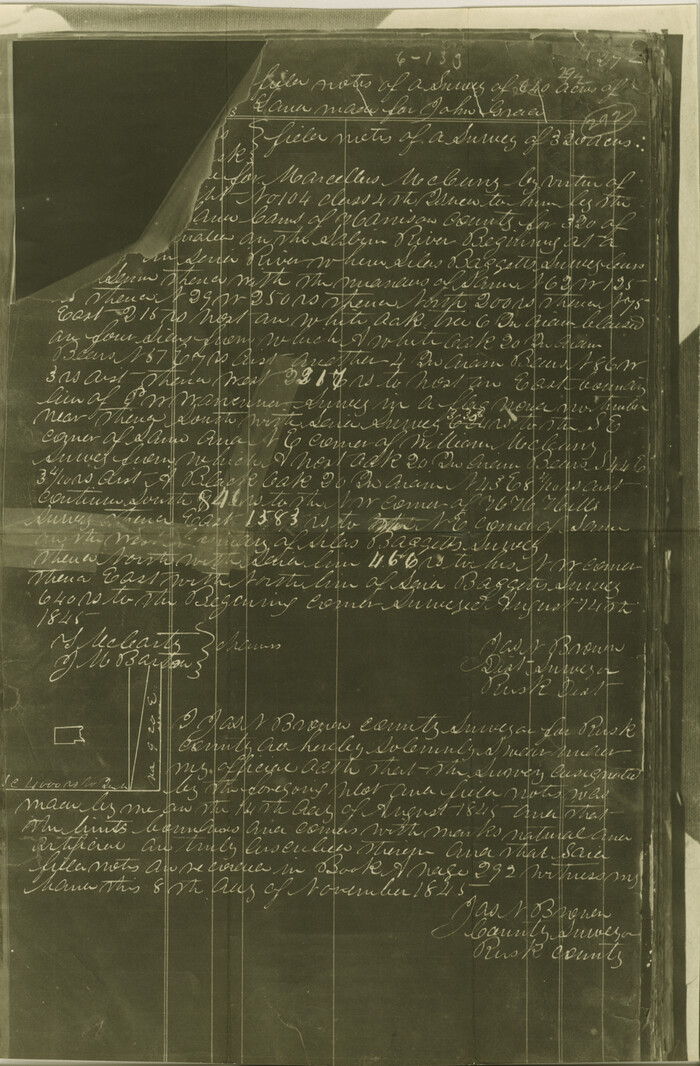 6-133
292
field notes of a Survey of 640 acres of
Land made for John Grace
292
field notes of a Survey of 320 acres
for Marcellus McCuny by virtue of
No 104 class 4th Issued to him by the
Land Coms of Harrison County for 320 of
on the Sabyn River Beginning at a
on Seria River where Silas Baggetts Survey
thence with the meanders of same N 62 W 125
thence N 29 W 250 rs thence North 200 rs thence N 75
East 215 rs Post an White Oak tree 6 In diam blazed
on four sides from which A White oak 20 In diam
Bears N 57 E 7 rs dist another 4 In diam Bears N 86 W
3 rs dist Thence West 2217 rs to Post on East boundary
line of P W Survey in a no timber
near thence South with Said Survey rs to the S E
corner of Same and N E corner of William McCuny
Survey from which A Post oak 20 In diam Bears S 44 E
3 4/10 rs dist A Black oak 20 In diam N 43 E 8 4/10 rs dist
Continue South 841 rs to the N W corner of Halls
Survey thence East 1383 rs to the N E corner of Same
on the West Boundary of Silas Baggetts Survey
Thence North with Said line 466 rs to his N W corner
thence East with North line of Said Baggetts Survey
640 rs to the Beginning corner Surveyed August 14th
1845
T McCarty
J M Barton
chains
Jas N Brown
Dist Surveyor
Rusk Dist
I Jas N Brown county Surveyor for Rusk
County do hereby Solemnly Swear under
my official oath that the Survey designated
by the foregoing plot and field notes was
made by me on the 14th day of August 1845 and that
the limits boundaries and corners with marks natural and
artificial are truly described therein and that Said
field notes are recorded in Book A page 292 witness my
hand this 8th day of November 1845
Jas N Brown
County Surveyor
Rusk County